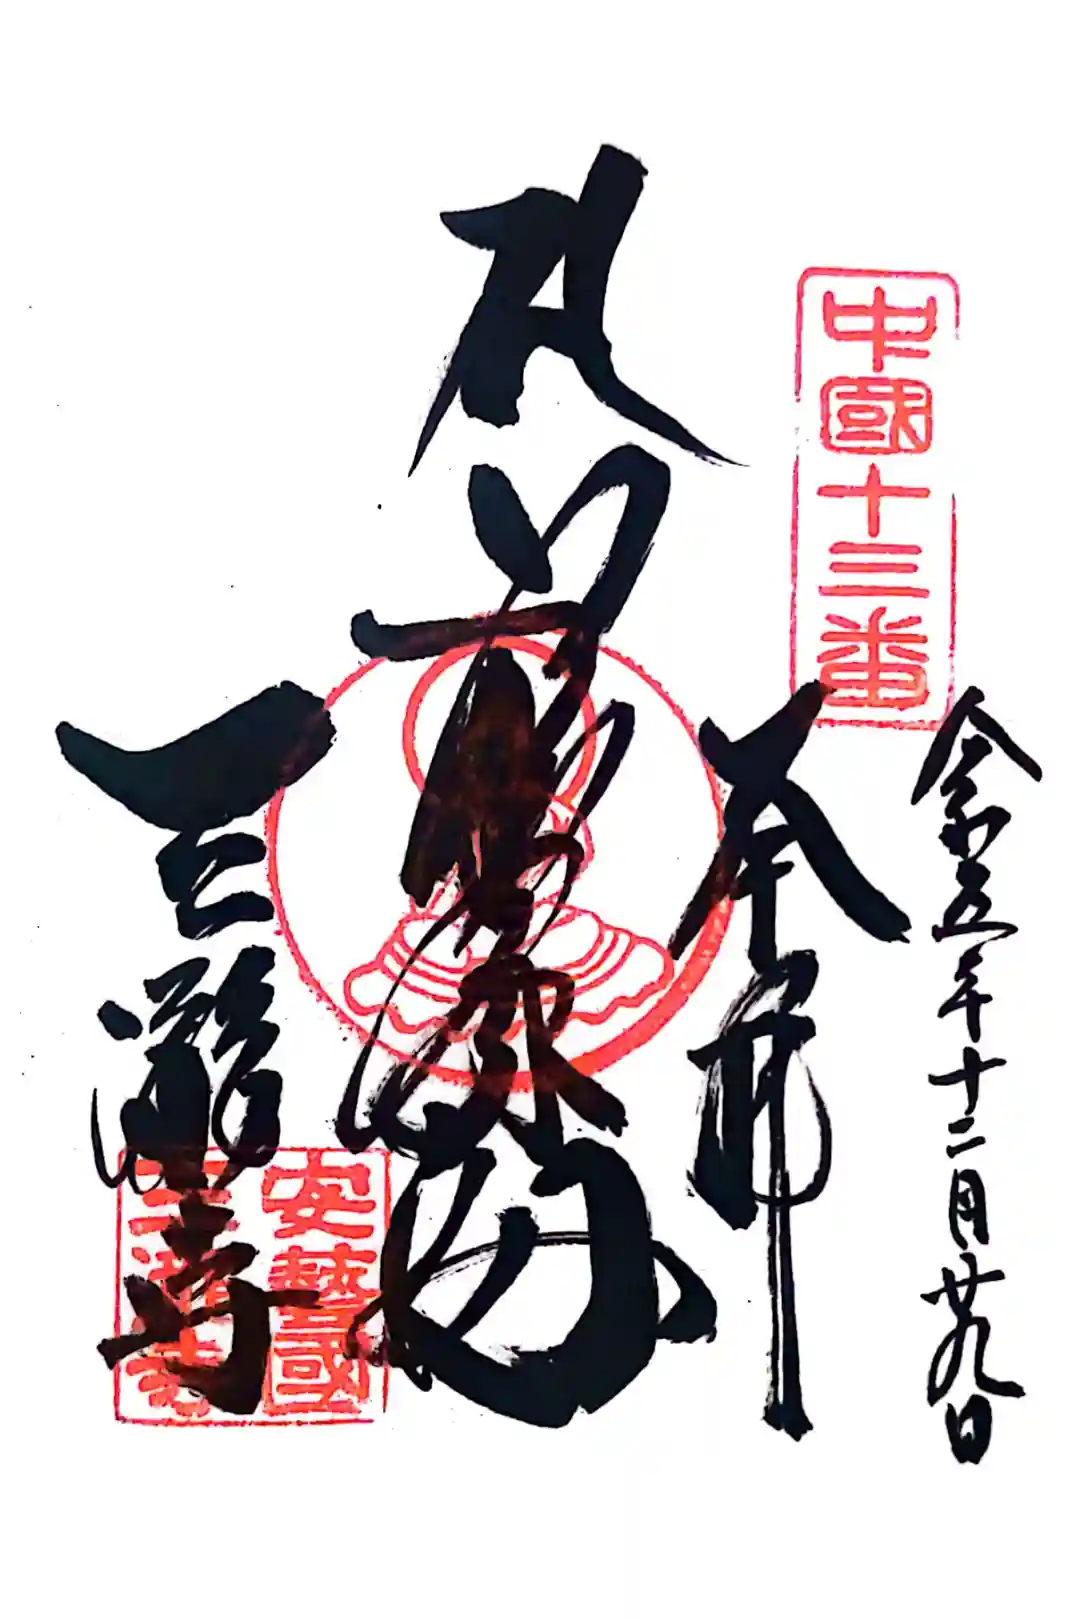 中國十三番
令和五年十二月廿九日
奉拝
三瀧寺
安藝國
三瀧寺